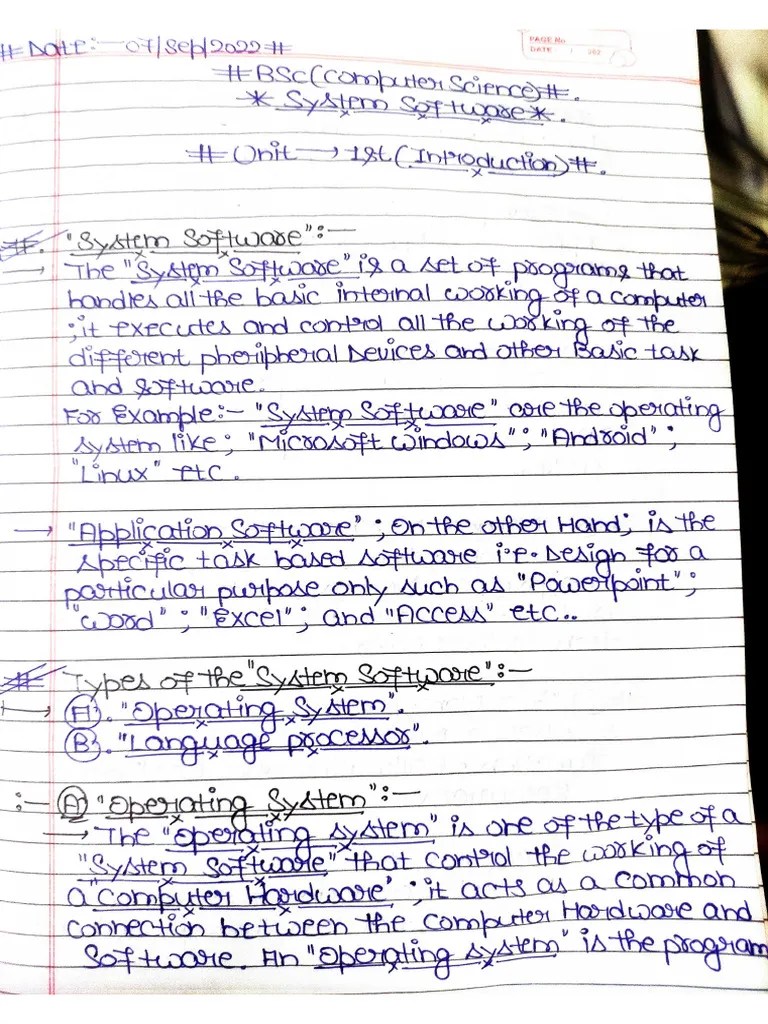 # Date:- 07/Sep/2022 #
PAGE No.
DATE
# BSc(Computer Science) #.
* System Software *.
# Unit → 1st (Introduction) #.
#. "System Software":-
→ The "System Software" is a set of programs that
handles all the basic internal working of a computer
; it executes and control all the working of the
different pheripheral Devices and other Basic task
and software.
For Example:- "System Software" core the operating
system like; "Microsoft Windows"; "Android";
"Linux" etc.
→ "Application Software"; on the other Hand; is the
specific task based software i.e. Design for a
particular purpose only such as "Powerpoint";
"Word"; "Excel"; and "Access" etc..
# Types of the "System Software":-
→ (A). "Operating System".
(B). "Language processor".
:- (A) "Operating System":-
→ The "operating system" is one of the type of a
"System Software" that control the working of
a "Computer Hardware"; it acts as a common
connection between the computer Hardware and
Software. An "Operating system" is the program